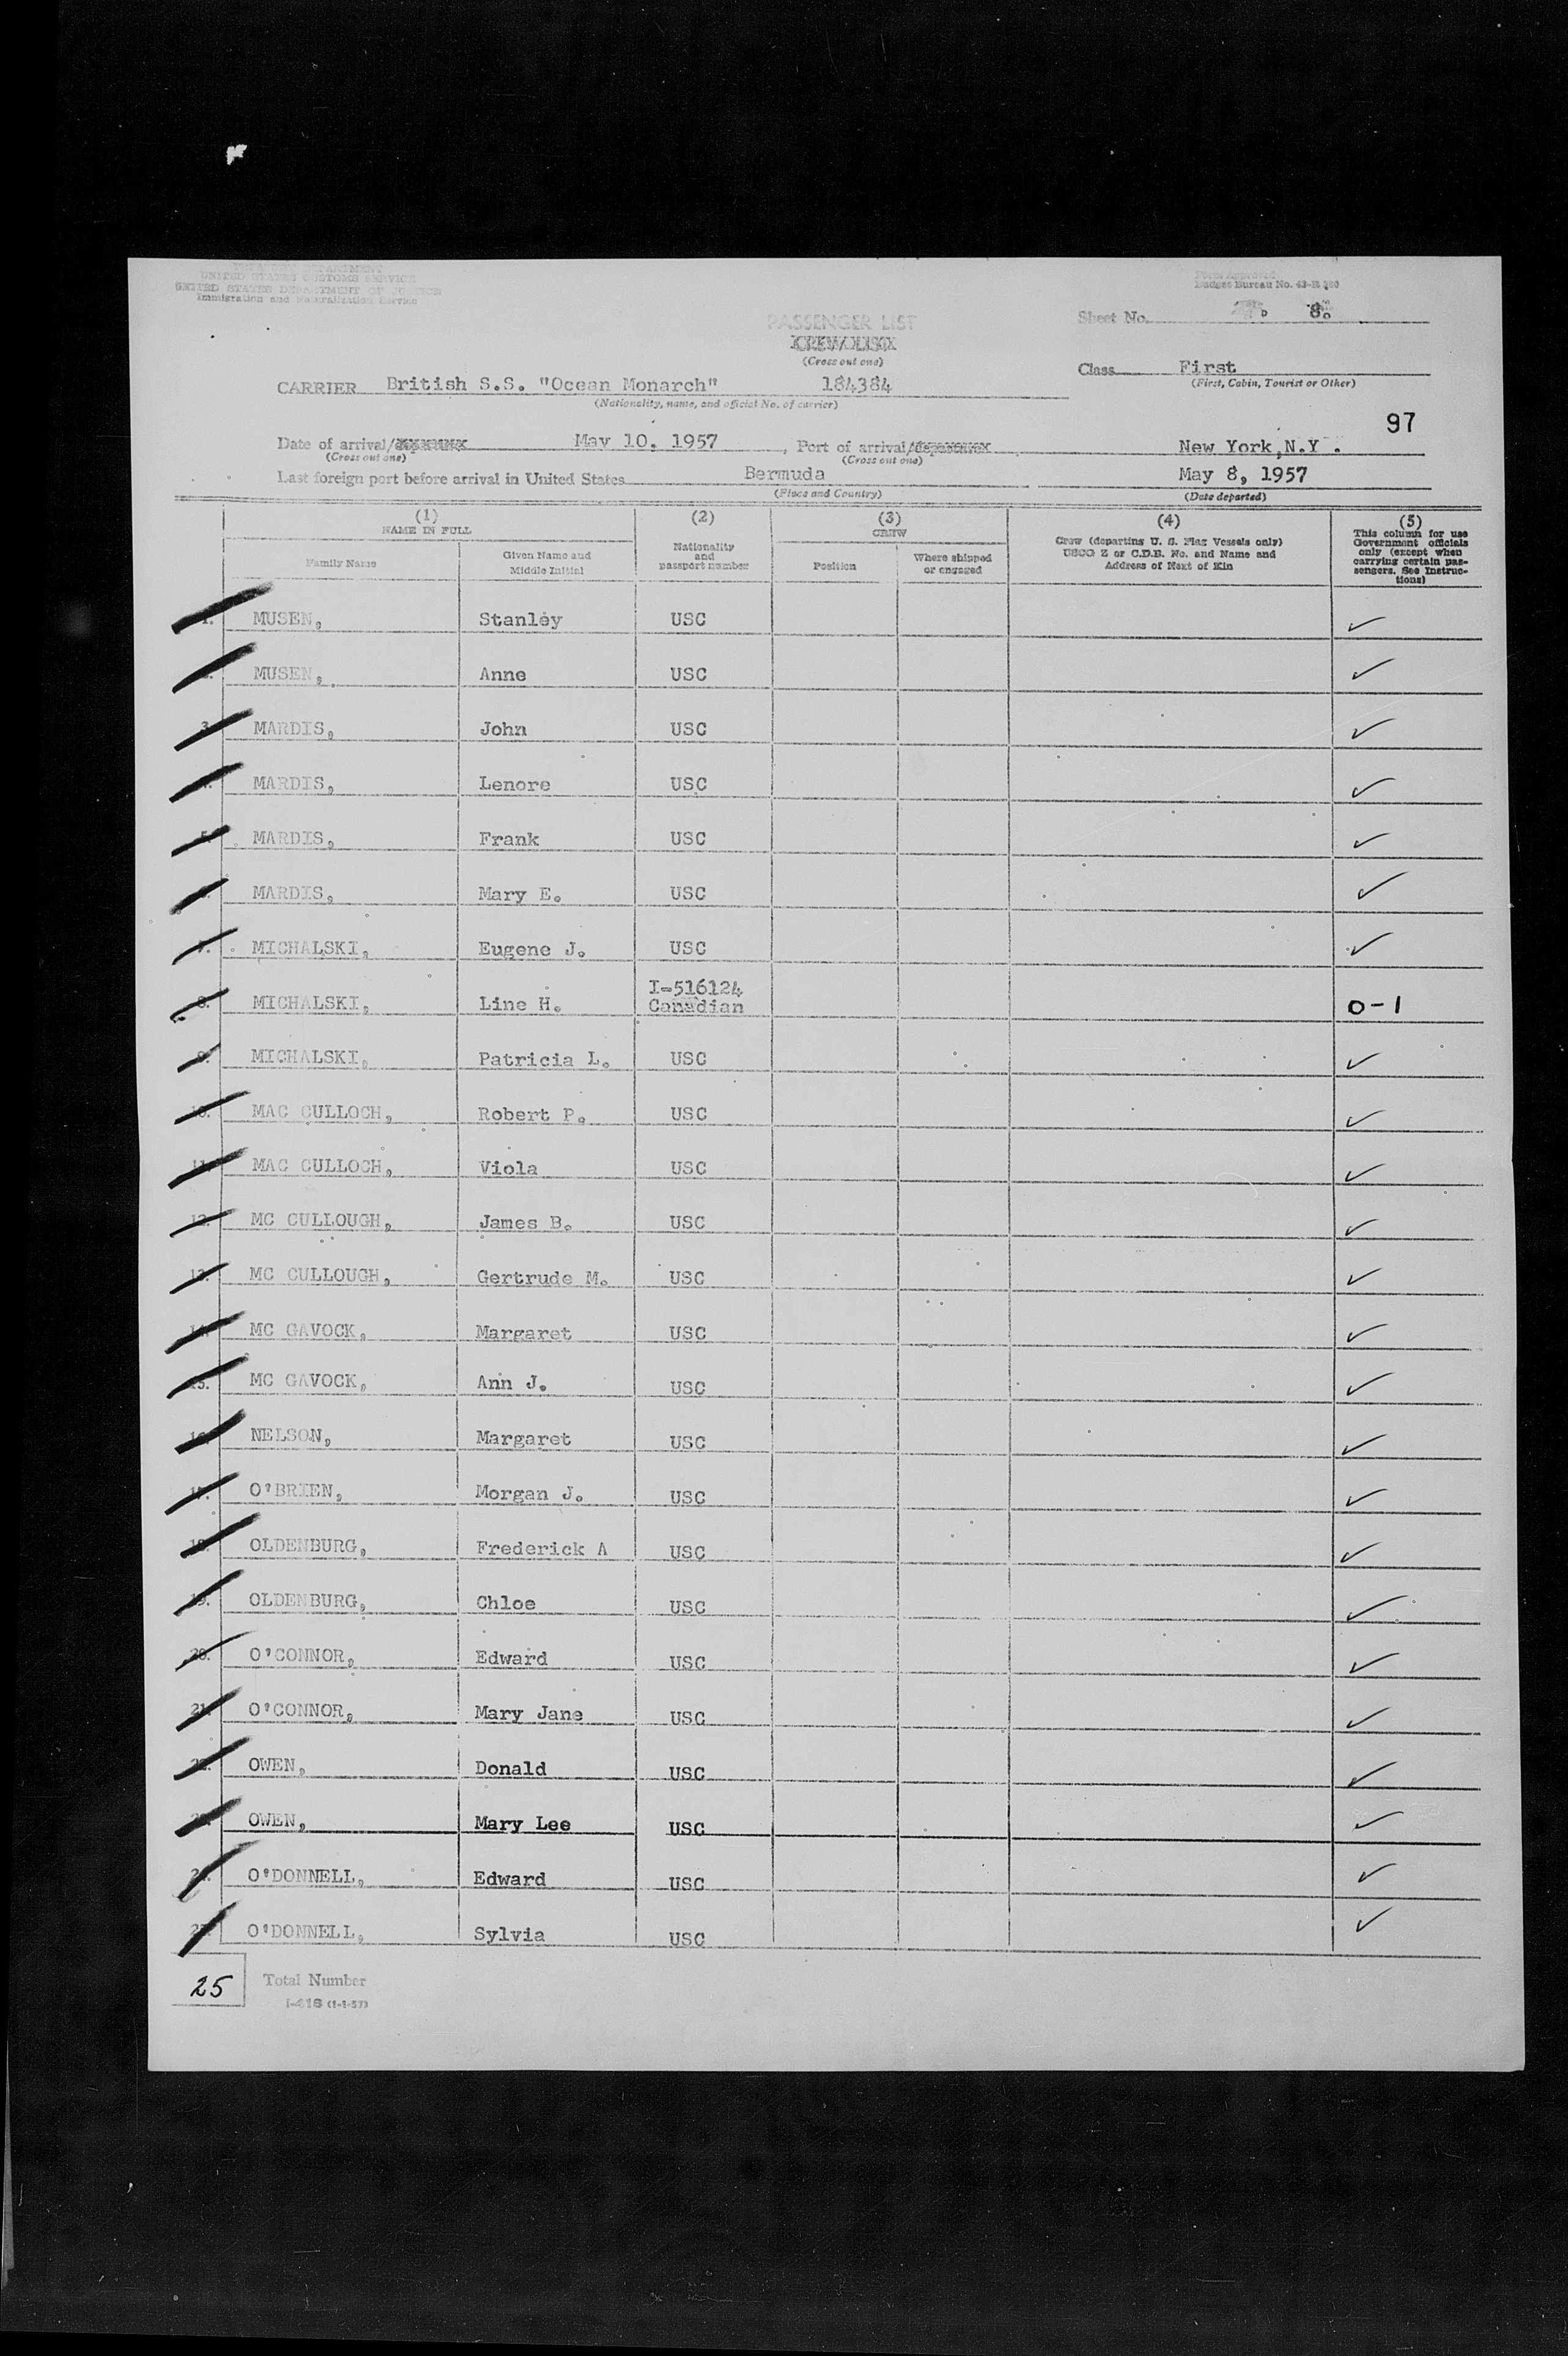 TREASURY DEPARTMENT
UNITED STATES CUSTOMS SERVICE
UNITED STATES DEPARTMENT OF JUSTICE
Immigration and Naturalization Service
Form Approved
Budget Bureau No. 43-R
Sheet No. 8.
PASSENGER LIST
CREW LIST
(Cross out one)
Class First
(First, Cabin, Tourist or Other)
CARRIER British S.S. "Ocean Monarch" 184384
(Nationality, name, and official No. of carrier)
97
Date of arrival/ May 10, 1957, Port of arrival/departure New York, N.Y.
(Cross out one) (Cross out one)
Last foreign port before arrival in United States Bermuda May 8, 1957
(Place and Country) (Date departed)
(1) (2) (3) (4) (5)
NAME IN FULL
Family Name
Given Name and Middle Initial
Nationality and passport number
CREW
Position
Where shipped or engaged
Crew (departing U. S. Flag Vessels only)
USCG Z or C.D.B. No. and Name and
Address of Next of Kin
This column for use
Government officials
only (except when
carrying certain pas-
sengers. See Instruc-
tions)
1. MUSEN, Stanley USC ✓
MUSEN, Anne USC ✓
3. MARDIS, John USC ✓
MARDIS, Lenore USC ✓
5. MARDIS, Frank USC ✓
MARDIS, Mary E. USC ✓
7. MICHALSKI, Eugene J. USC ✓
8. MICHALSKI, Line H. I-516124 Canadian 0-1
9. MICHALSKI, Patricia L. USC ✓
10. MAC CULLOCH, Robert P. USC ✓
11. MAC CULLOCH, Viola USC ✓
12. MC CULLOUGH, James B. USC ✓
13. MC CULLOUGH, Gertrude M. USC ✓
14. MC GAVOCK, Margaret USC ✓
15. MC GAVOCK, Ann J. USC ✓
16. NELSON, Margaret USC ✓
17. O'BRIEN, Morgan J. USC ✓
18. OLDENBURG, Frederick A USC ✓
19. OLDENBURG, Chloe USC ✓
20. O'CONNOR, Edward USC ✓
21. O'CONNOR, Mary Jane USC ✓
22. OWEN, Donald USC ✓
OWEN, Mary Lee USC ✓
24. O'DONNELL, Edward USC ✓
25. O'DONNELL, Sylvia USC ✓
25 Total Number
I-418 (1-1-57)